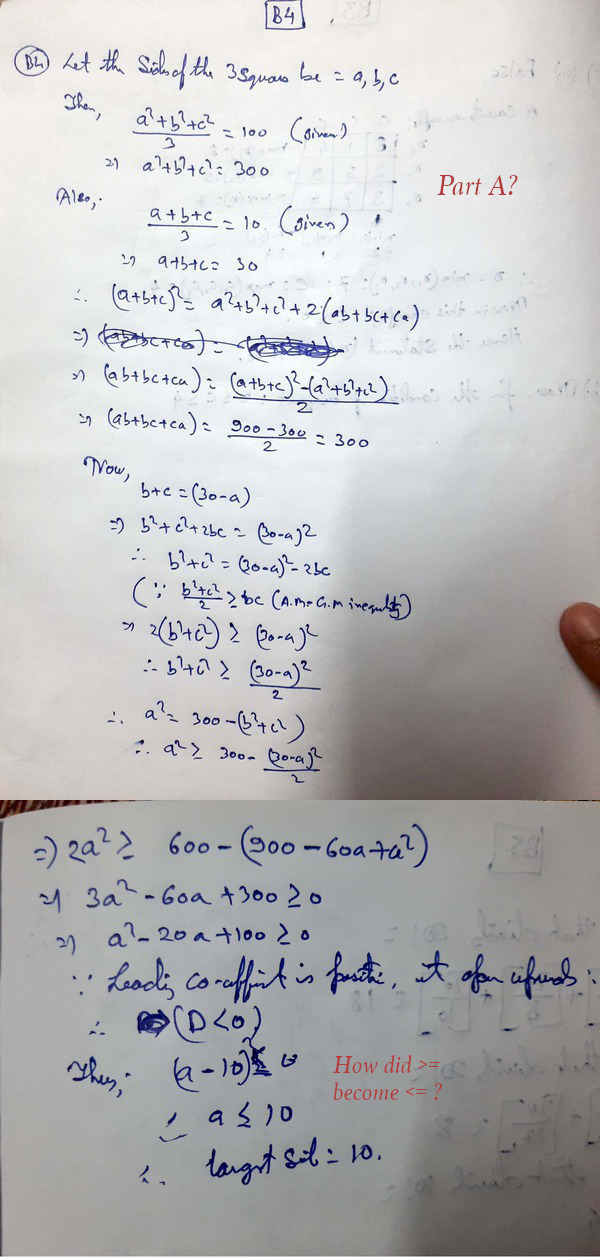 B4
B4 Let the Sides of the 3 Squares be = a, b, c
Then,
(a²+b²+c²)/3 = 100 (given)
⇒ a²+b²+c² = 300
Part A?
Also,
(a+b+c)/3 = 10 (given)
⇒ a+b+c = 30
∴ (a+b+c)² = a²+b²+c²+2(ab+bc+ca)
⇒ (ab+bc+ca) = ((a+b+c)²-(a²+b²+c²))/2
⇒ (ab+bc+ca) = (900-300)/2 = 300
Now,
b+c = (30-a)
⇒ b²+c²+2bc = (30-a)²
∴ b²+c² = (30-a)²-2bc
(∵ (b²+c²)/2 ≥ bc (A.M-G.M inequality)
⇒ 2(b²+c²) ≥ (30-a)²
∴ b²+c² ≥ (30-a)²/2
∴ a² = 300-(b²+c²)
∴ a² ≥ 300-(30-a)²/2
⇒ 2a² ≥ 600-(900-60a+a²)
⇒ 3a²-60a+300 ≥ 0
⇒ a²-20a+100 ≥ 0
∵ Leading co-efficient is positive, it open upwards:
∴ (D<0)
Thus, (a-10)² ≤ 0
How did >=
become <= ?
∴ a ≤ 10
∴ largest side = 10.